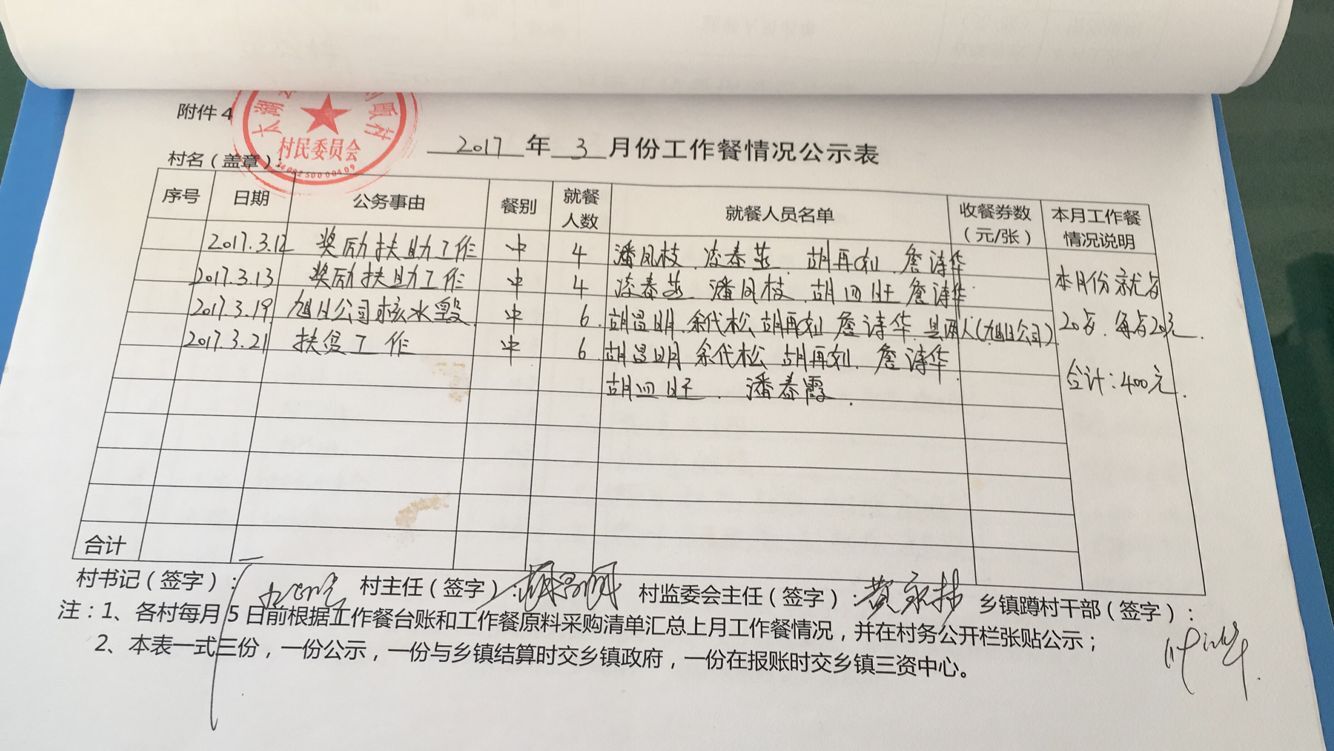 附件4
太湖 顾村
村民委员会
2017 年 3 月份工作餐情况公示表
村名（盖章）：
序号 日期 公务事由 餐别 就餐人数 就餐人员名单 收餐券数（元/张） 本月工作餐情况说明
2017.3.12 奖励扶助工作 中 4 潘凤枝 凌春燕 胡再刘 詹诗华
2017.3.13 奖励扶助工作 中 4 凌春燕 潘凤枝 胡四旺 詹诗华
2017.3.19 旭日公司核水毁 中 6 胡昌明 余代松 胡再刘 詹诗华 县两人(旭日公司)
2017.3.21 扶贫工作 中 6 胡昌明 余代松 胡再刘 詹诗华
胡四旺 潘春霞
本月份就占
20占 每占20元
合计：400元
合计
村书记（签字）： 村主任（签字）：胡昌明 村监委会主任（签字）：黄家林 乡镇蹲村干部（签字）：
注：1、各村每月5日前根据工作餐台账和工作餐原料采购清单汇总上月工作餐情况，并在村务公开栏张贴公示；
2、本表一式三份，一份公示，一份与乡镇结算时交乡镇政府，一份在报账时交乡镇三资中心。